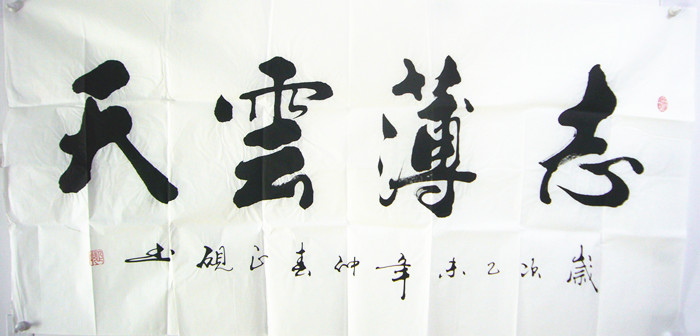 志薄雲天
歲次乙未年仲春正硯书